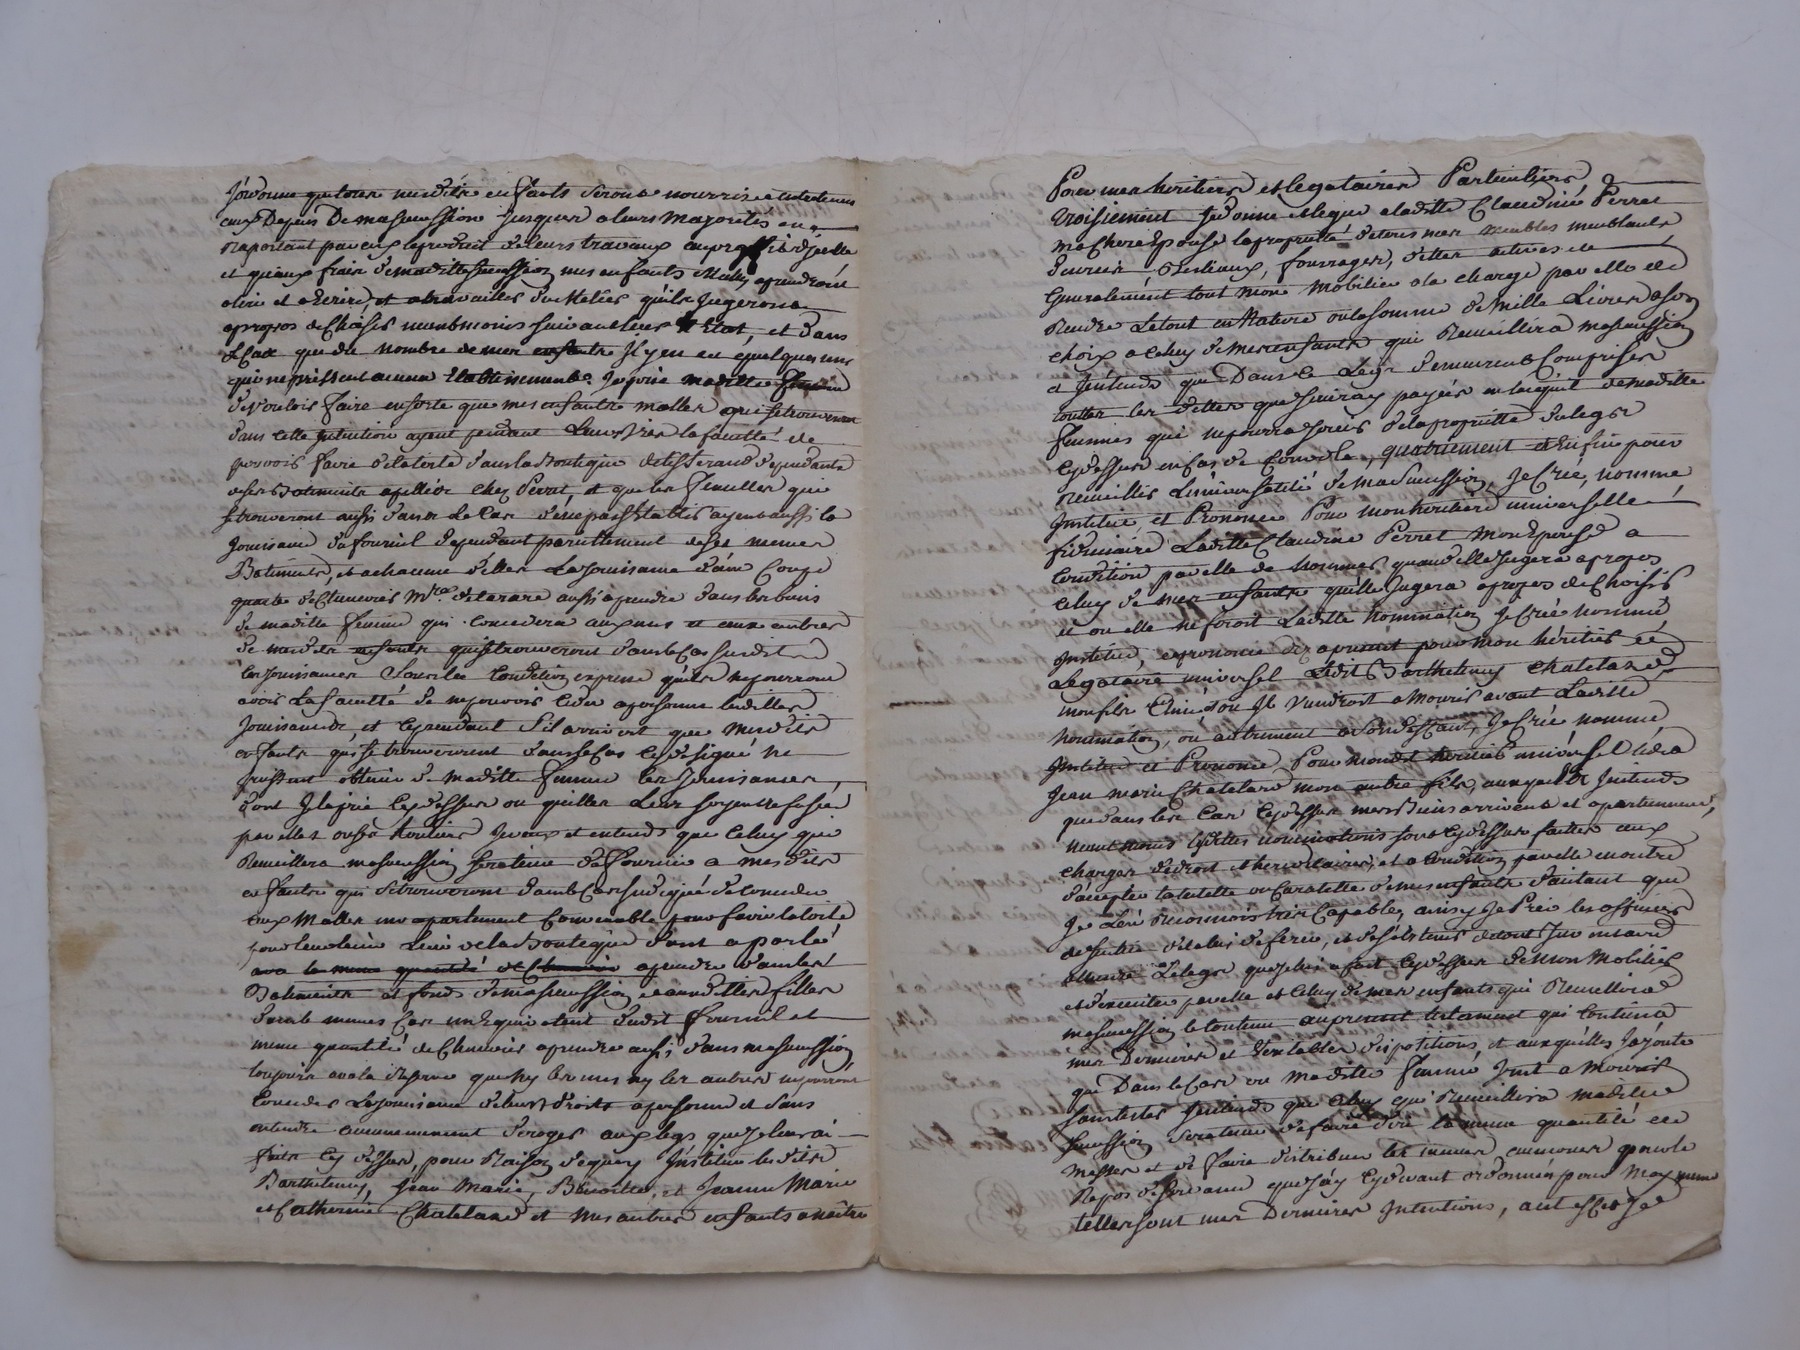 J'ordonne que tous mesdits enfants seront nourris et entretenus
eux Depuis De ma sucession jusques a leurs Majorités en
Raportant par eux le produit de leurs travaux au profit d'icelle
et qu'aux frais de madite sucession mes enfants Malles aprendront
a lire et a Ecrire, et a travailler du Metier qu'ils Jugeront
apropos de Choisir neantmoins suivant leur Etat, et dans
le Cas que de nombre de mes enfants Il y en eu quelques uns
qui ne prissent aucun Etablissements. Je prie madite Femme
de vouloir faire ensorte que mes enfants malles qui se trouveront
dans cette Intention ayent pendant Leurs Vies la faculté de
pouvoir faire de la toile dans la Boutique de tisserand dependante
de ses Batiments apellée chez Perrat, et que les Femelles qui
se trouveront aussi dans Le Cas d'être pas Etablis ayent aussi la
Jouissance du fournil dependant pareillement de ses memes
Batiments, et a chacune d'elles La Jouissance d'une Coupe
quarte de Chenevier M.re de tarare aussi a prendre dans les biens
de madite Femme qui Concedera aux uns et aux autres
de mesdits enfants qui se trouveront dans le Cas susdit
les Jouissances Sous la Condition expresse qu'ils ne pourront
avoir La faculté de ne pouvoir Ceder a personne lesdittes
Jouissances, et Cependant S'il arrivoit que Mesdits
enfants qui se trouveroient dans le Cas Cy designé ne
puissent obtenir de Madite Femme les Jouissances,
dont Je la prie Cy dessus ou qu'elles Leur soyent refusées
par elle ou ses heritiers Je veux et entends que Celuy qui
Recueillera ma sucession sera tenu de fournir a mesdits
enfants qui se trouveront dans le Cas susdesigné de Conceder
aux Malles un apartement Convenable pour faire la toile
pour leur tenir Lieu de la Boutique dont a parlé
a prendre dans les
Batiments et fonds de ma sucession et auxdittes filles
dans le memes Cas un Equivalent dudit fournil et
meme quantité de Chenevier a prendre aussi dans ma sucession
toujours avec la Reserve que Ny les uns ny les autres ne pourront
Conceder La Jouissance de leurs droits a personne et Sans
entendre aucunement Deroger aux legs que Je leur ai
faits Cy dessus, pour Raison de quoy J'institue lesdits
Barthelemy, Jean Marie, Benoitte, et Jeanne Marie
et Catherine Chatelard et Mes autres enfants a naitre
Pour mes heritiers et legataires Particuliers
Troisiement Je donne et legue a ladite Claudine Perret
ma Chere Epouse la propriété de tous mes meubles meublants
Denrées Bestiaux, fourrages, dettes actives et
Generalement tout mon Mobilier a la charge par elle de
Rendre Le tout en Nature ou la somme de Mille Livres a son
choix a Celuy de mes enfants qui Recueillira ma sucession
et J'entends que Dans Ce Legs demeurent Comprises
touttes les dettes que J'auray payées en l'acquit de madite
Femme qui ne pourra Jouir de la propriété du legs
Cy dessus en Cas de Convole, quatriement et Enfin pour
Recueillir L'universalité de ma Sucession, Je Crée, nomme
Institue, et Prononce Pour mon heritiere universelle
fiduciaire Ladite Claudine Perret Mon Epouse a
Condition par elle de Nommer quand elle Jugera apropos
Celuy de mes enfants qu'elle Jugera apropos de Choisir
et ou elle ne feroit Ladite Nomination Je Crée nomme
Institue, et prononce des apresent pour Mon héritier et
Legataire universel Ledit Barthelemy Chatelard
mon fils Ainé, et ou Il Viendroit a Mourir avant Ladite
Nomination, ou autrement a son deffaut, Je Crée nomme
Institue et Prononce Pour Mondit heritier universel ledit
Jean marie Chatelard mon autre fils, auxquels J'entends
que dans les Cas Cy dessus mes Biens arrivent et apartiennent,
Neantmoins lesdittes nominations sont Cy dessus faites aux
charges de droit et hereditaires, et a Condition par elle encore
d'accepter la tutelle ou Curatelle de mes enfants d'autant que
Je L'ai Reconnois tres Capable, ainsy Je Prie les officiers
de Justice de la lui deferer, et de s'abstenir de tout Inventaire
attendu Le legs que Je lui a fait Cy dessus de mon Mobilier
et d'executer par elle et Celuy de mes enfants qui Recueillira
ma sucession le Contenu au present testament qui Contient
mes Dernieres et Veritables dispositions, et auxquelles J'ajoute
que Dans le Cas ou Madite Femme Vint a Mourir
sans tester J'entends que Celuy qui Recueillira madite
sucession sera tenu de faire dire la meme quantité de
Messes et de faire distribuer les memes aumones pour le
Repos de son ame que J'ay Cy devant ordonnés pour Moy meme
telles sont mes Dernieres Intentions, a cet effet Je